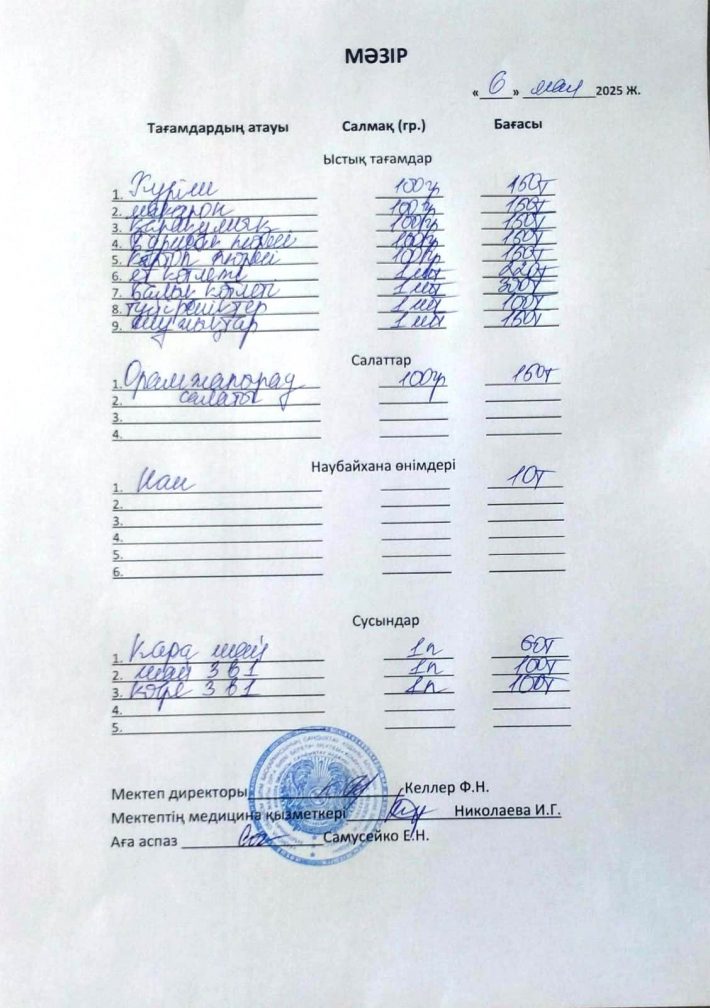 МӘЗІР
«6» май 2025 Ж.
Тағамдардың атауы Салмақ (гр.) Бағасы
Ыстық тағамдар
1. Күріш 100гр 150т
2. макарон 100гр 150т
3. қарақұмық 100гр 150т
4. 100гр 150т
5. картоп пюреси 100гр 150т
6. ет котлеті 1 шт 220т
7. балық котлеті 1 шт 300т
8. 1 шт 100т
9. шұжықтар 1 шт 150т
Салаттар
1. 100гр 150т
2. салаты
3.
4.
Наубайхана өнімдері
1. Нан 10т
2.
3.
4.
5.
6.
Сусындар
1. Кара шай 1п 60т
2. шай 3 в 1 1п 100т
3. кофе 3 в 1 1п 100т
4.
5.
Мектеп директоры Келлер Ф.Н.
Мектептің медицина қызметкері Николаева И.Г.
Аға аспаз Самусейко Е.Н.